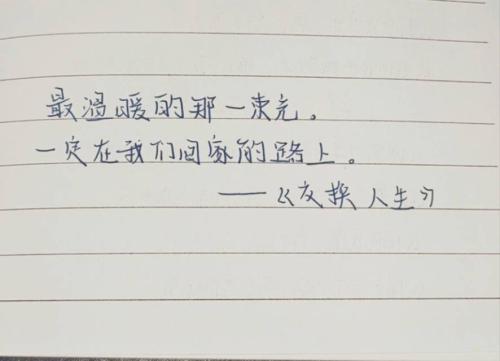 最温暖的那一束光。
一定在我们回家的路上。
——《交换人生》